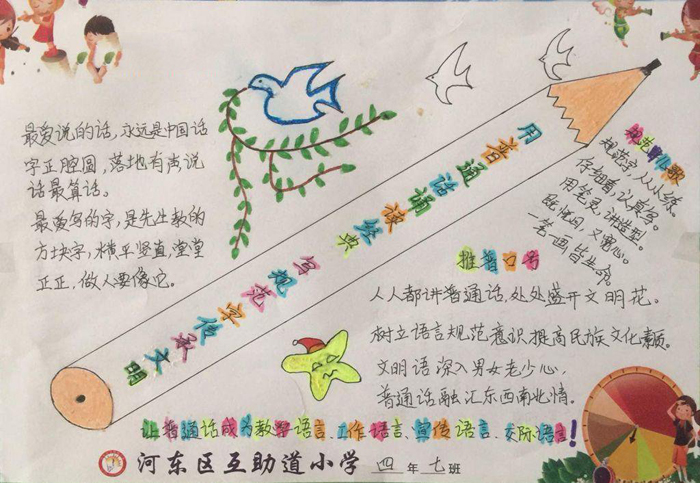 最爱说的话，永远是中国话
字正腔圆，落地有声说
话最算话。
最爱写的字，是先生教的
方块字，横平竖直，堂堂
正正，做人要像它。
用普通话诵读经典
写规范字传承文明
规范字儿歌
规范字，人人练。
仔细看，认真写。
用笔灵，讲造型。
既悦目，又赏心。
一笔一画皆生命。
推普口号
人人都讲普通话，处处盛开文明花。
树立语言规范意识，提高民族文化素质。
文明语深入男女老少心，
普通话融汇东西南北情。
让普通话成为教学语言、工作语言、宣传语言、交际语言！
河东区互助道小学 四年七班